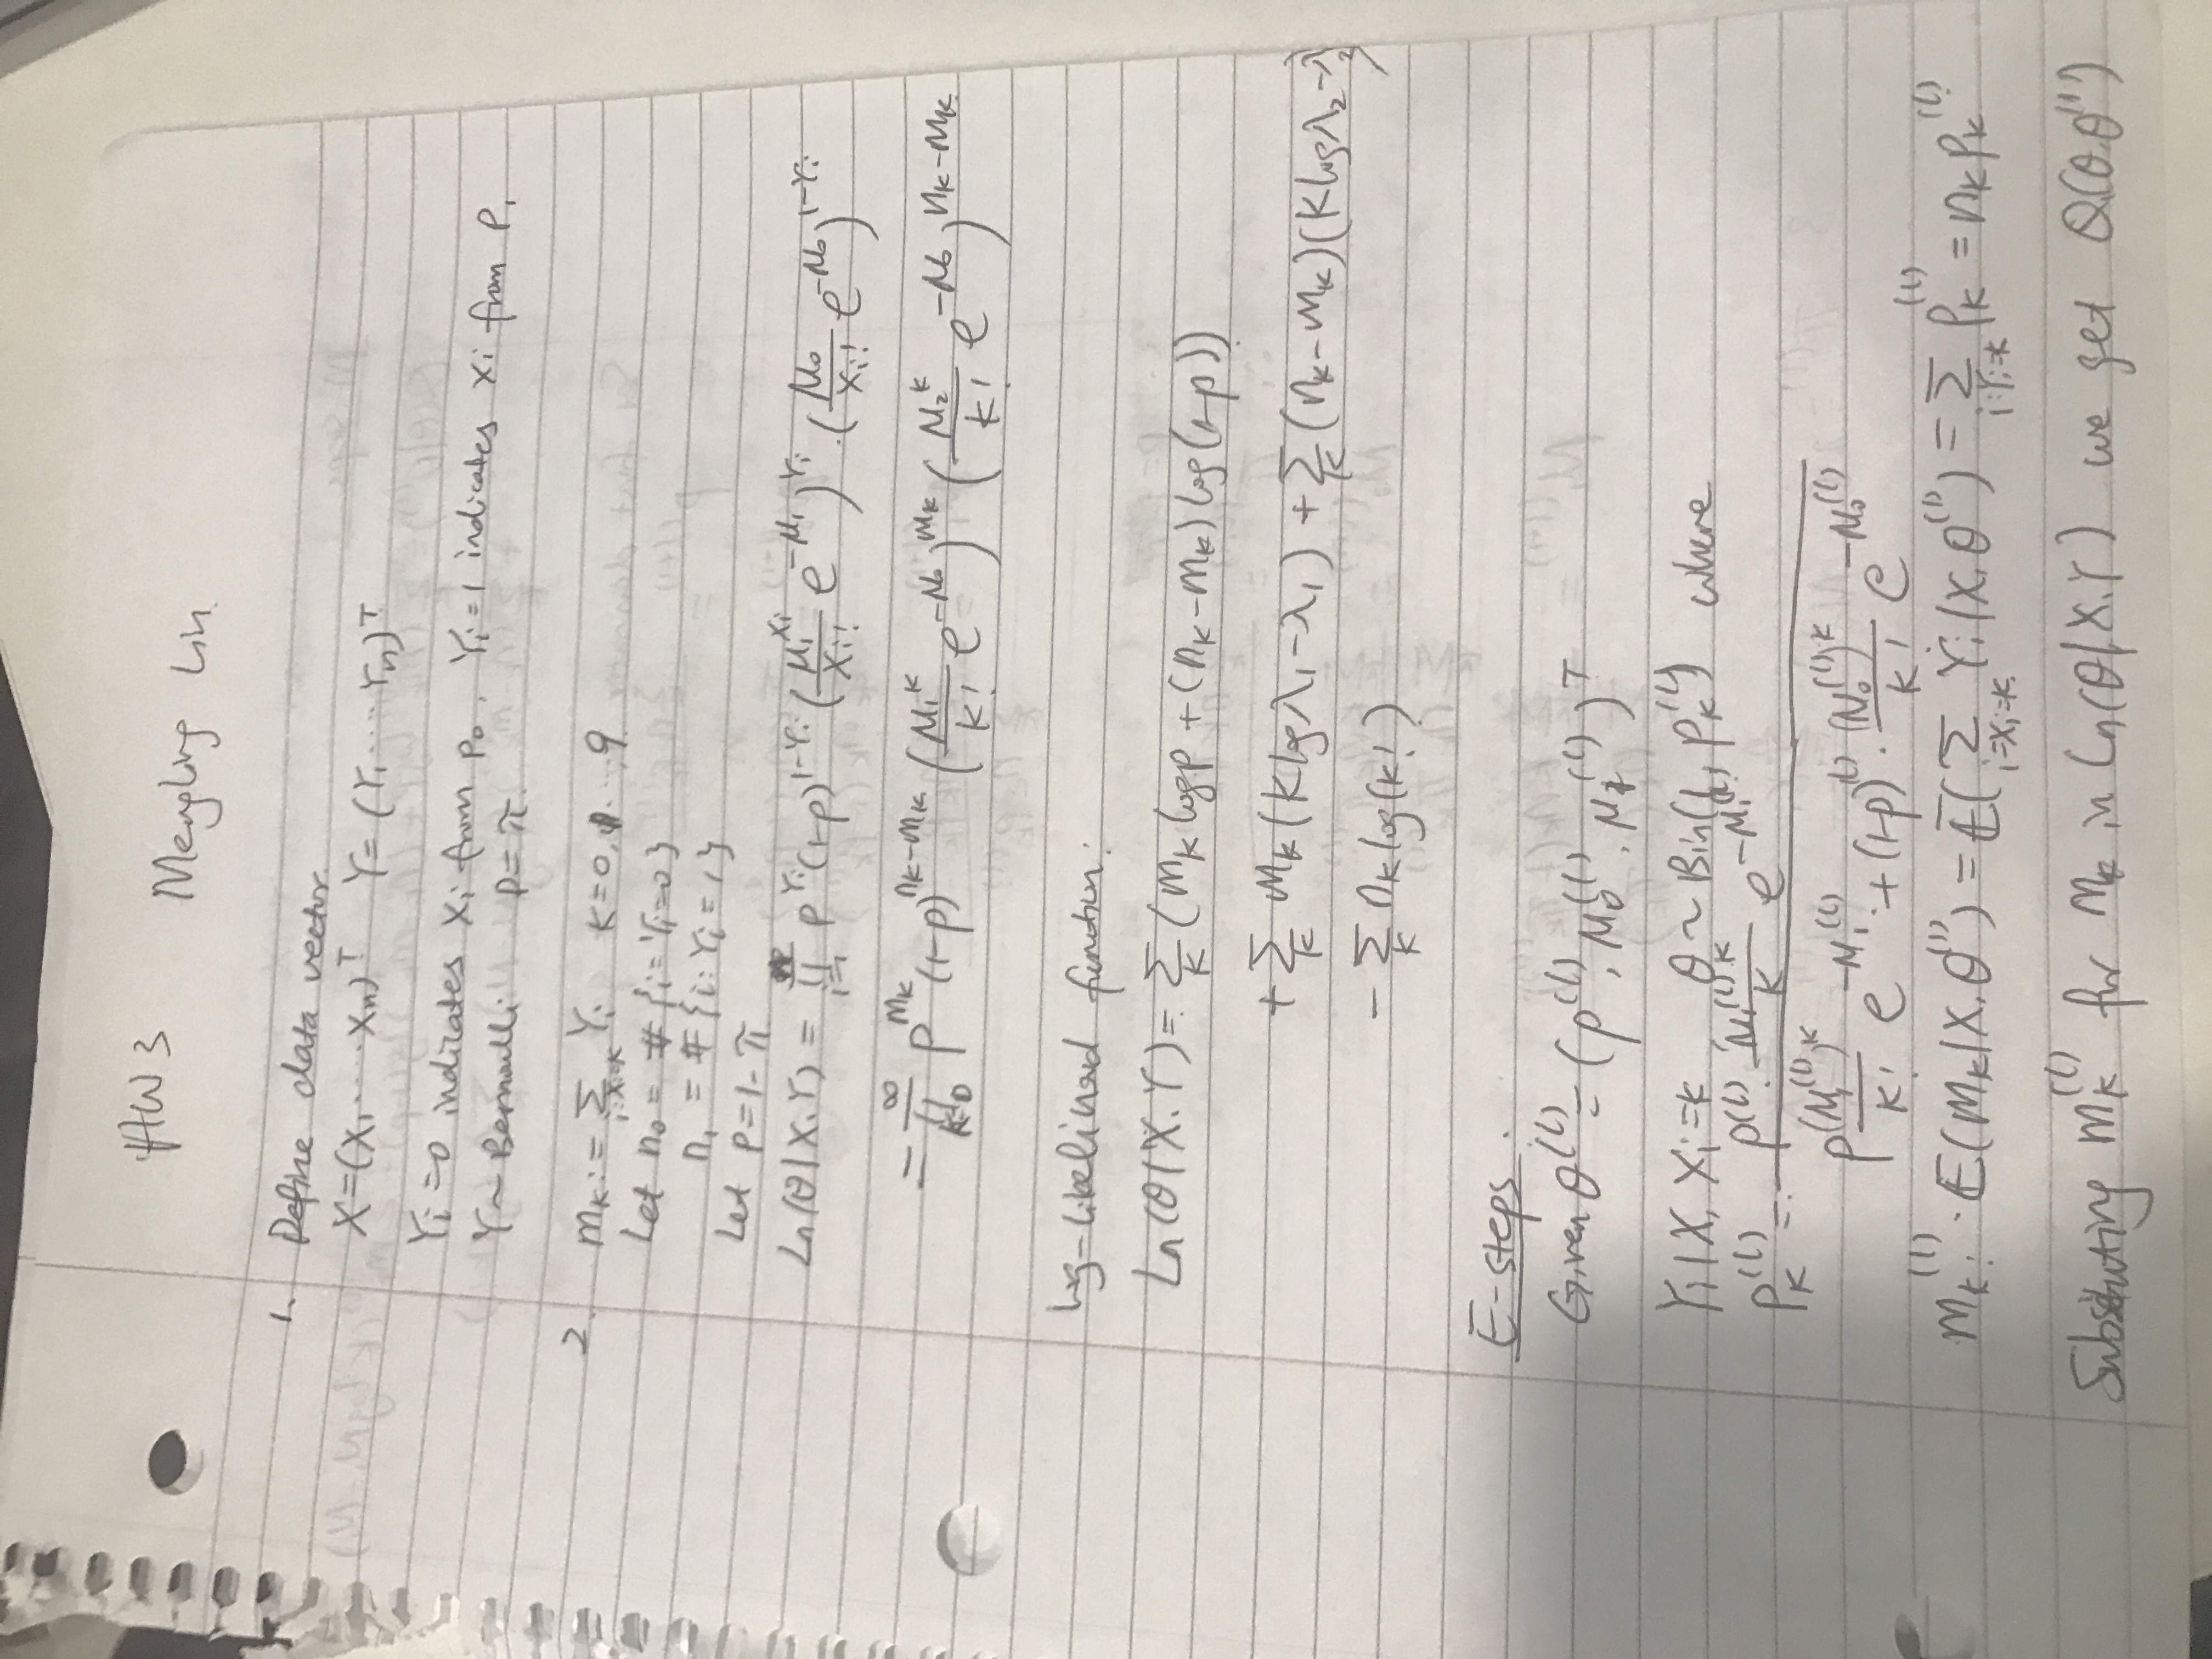 HW 3 Mengling Lin
1. Define data vector.
X=(X₁ ····· Xn)ᵀ Y=(Y₁ ···· Yn)ᵀ
Yi=0 indicates Xi from p₀. Yi=1 indicates Xi from P₁
Y~Bernoulli P=π.
2. mk := Σ_{i:Xi=k} Yi k=0,1...9
Let n₀ = #{i=Yi=0}
n₁ = #{i:Yi=1}
Let p=1-π
Ln(θ|X.Y) = ∏_{i=1}^{n} p^{Yi}(1-p)^{1-Yi} (μ₁^{Xi}/Xi! e^{-μ₁})^{Yi} · (μ₀/Xi! e^{-μ₀})^{1-Yi}
= ∏_{k=0}^{∞} p^{mk}(1-p)^{nk-mk} (μ₁^k/k! e^{-μ₀})^{mk} (μ₂^k/k! e^{-μ₀})^{nk-mk}
log-likelihood function:
Ln(θ|X.Y)= Σ_k (mk logp + (nk-mk) log(1-p))
+ Σ_k mk(k logλ₁-λ₁) + Σ_k (nk-mk)(k logλ₂-λ₂)
- Σ_k nk log(k!)
E-steps.
Given θ^{(l)} = (p^{(l)}, μ₀^{(l)}, μ₁^{(l)})ᵀ
Yi|X, Xi=k, θ~Bin(1, pk^{(l)}) where
pk^{(l)} = p^{(l)}·μ₁^{(l)k}/k e^{-μ₁^{(l)}} / p(μ₁^{(l)})^k/k! e^{-μ₁^{(l)}} + (1-p)^{(l)}·(μ₀^{(l)})^k/k! e^{-μ₀^{(l)}}
mk^{(l)}: E(mk|X.θ^{(l)}) = E(Σ_{i=Xi=k} Yi|X,θ^{(l)}) = Σ_{i:Yi=k} Pk^{(l)} = nk pk^{(l)}
Substituting mk^{(l)} for mk in Ln(θ|X.Y) we get Q(θ.θ^{(l)})